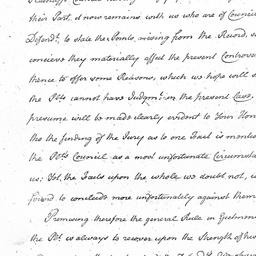 their Part, it now remains with us who are of Council
Defendt. to state the Points, arising from the Record,
conceive they materially affect the present Controv
thence to offer some Reasons, which we hope will
the Plts. cannot have Judgmt. in the present Case.
presume will be made clearly evident to Your Hono
tho the finding of the Jury as to one Fact is
the Plts Council as a most unfortunate Circumsta
us: Yet, the Facts upon the whole we doubt not,
found to conclude more unfortunately against them
Premising therefore the general Rule in Ejectmen
the Plt. is always to recover upon the Strength of his